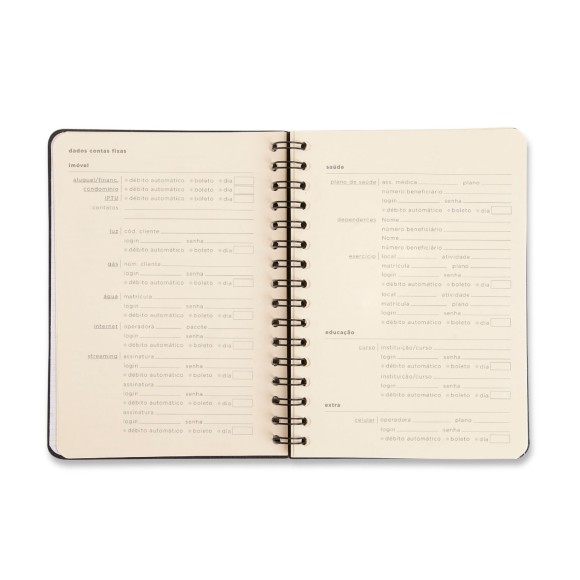 dados contas fixas
imóvel
aluguel/financ. débito automático boleto dia
condomínio débito automático boleto dia
IPTU débito automático boleto dia
contatos
luz cód. cliente
login senha
débito automático boleto dia
gás núm. cliente
login senha
débito automático boleto dia
água matrícula
login senha
débito automático boleto dia
internet operadora pacote
login senha
débito automático boleto dia
streaming assinatura
login senha
débito automático boleto dia
assinatura
login senha
débito automático boleto dia
assinatura
login senha
débito automático boleto dia
saúde
plano de saúde ass. médica plano
número beneficiário
login senha
débito automático boleto dia
dependentes nome
número beneficiário
nome
número beneficiário
exercício local atividade
matrícula plano
débito automático boleto dia
local atividade
matrícula plano
débito automático boleto dia
educação
curso instituição/curso
login senha
débito automático boleto dia
instituição/curso
login senha
débito automático boleto dia
extra
celular operadora plano
login senha
débito automático boleto dia